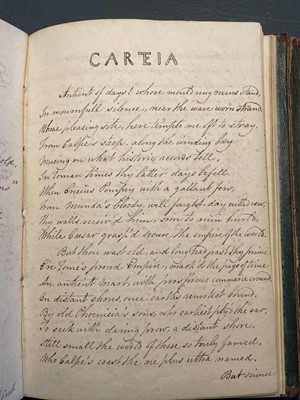 CARTEIA
Antient of days! whose mouldring ruins stand,
In mournfull silence, near the wave worn strand
Whose pleasing site, here tempts me oft to stray,
From Calpe's steep, along the winding bay
Musing on what historic records tell,
In Roman times thy latter days befell.
When Pompey with a gallant few,
From Munda's bloody, well fought day withdrew,
Thy walls receiv'd him, soon to ruin hurl'd
While Caesar grasp'd secure, the empire of the world.
But thou wast old, and long had past thy prime
E're Rome's proud Empire, mark'd the page of time
In antient marts, with prosp'rous commerce crown'd
On distant shores, once earth's remotest bound.
By old Phoenicia's sons, who earliest plough'd the sea,
To seek with daring prow, a distant shore,
Still small the world of these so truly famed,
Who Calpe's coast the ne plus ultra named.
But science